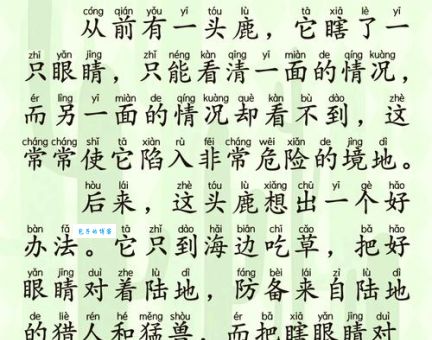 cóng qián yǒu yī tóu lù tā xiā le yī
从前有一头鹿，它瞎了一
zhī yǎn jīng zhǐ néng kàn qīng yī miàn de qíng kuàng
只眼睛，只能看清一面的情况，
ér lìng yī miàn de qíng kuàng què kàn bù dào zhè
而另一面的情况却看不到，这
cháng cháng shǐ tā xiàn rù fēi cháng wēi xiǎn de jìng dì
常常使它陷入非常危险的境地。
hòu lái zhè tóu lù xiǎng chū yī gè hǎo
后来，这头鹿想出一个好
bàn fǎ tā zhǐ dào hǎi biān chī cǎo bǎ hǎo
办法。它只到海边吃草，把好
包子的博客
yǎn jīng duì zhe lù dì fáng bèi lái zì lù dì
眼睛对着陆地，防备来自陆地
de liè rén hé měng shòu ér bǎ xiā yǎn jīng duì
的猎人和猛兽，而把瞎眼睛对